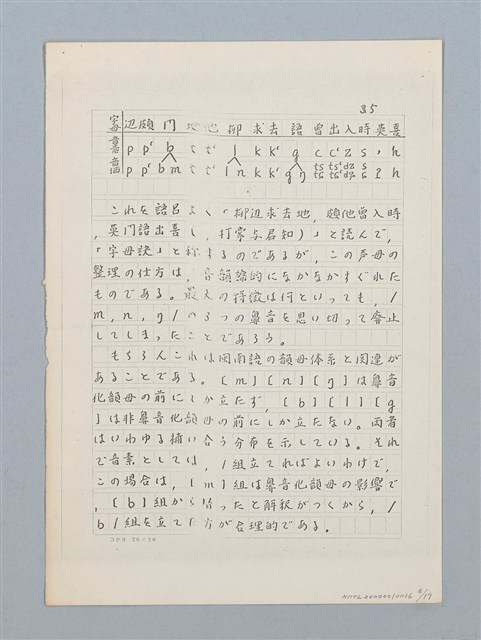 35
字母 辺頗門地他柳求去語曾出入時英喜
音素 p p' b t t' l k k' g c c' z s ' h
音価 p p' b m t t' l n k k' g ŋ ts ts' dz s ʔ h
tɕ tɕ' dʑ ɕ
これを語呂よく「柳辺求去地，頗他曾入時
，英門語出喜（，打掌与君知）」と読んで，
「字母訣」と称するのであるが，この声母の
整理の仕方は，音韻論的になかなかすぐれた
ものである。最大の特徴は何といっても，/
m, n, ŋ/の3つの鼻音を思い切って廃止
してしまったことであろう。
もちろんこれは閩南語の韻母体系と関連が
あることである。[m][n][ŋ]は鼻音
化韻母の前にしか立たず，[b][l][g
]は非鼻音化韻母の前にしか立たない。両者
はいわゆる補い合う分布を示している。それ
で音素としては，1組立てればよいわけで，
この場合は，[m]組は鼻音化韻母の影響で
，[b]組から替ったと解釈がつくから，/
b/組を立てた方が合理的である。
コクヨ 20×20
6/17